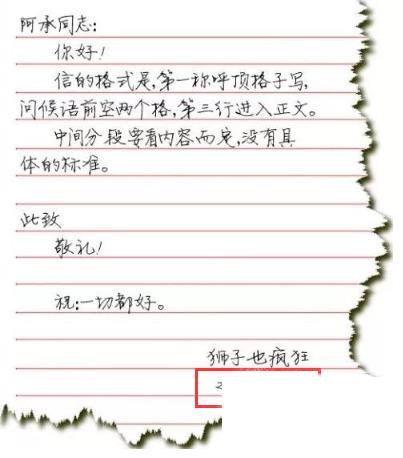 阿承同志：
你好！
信的格式是,第一称呼顶格子写,
问候语前空两个格,第三行进入正文。
中间分段要看内容而定,没有具
体的标准。
此致
敬礼！
祝：一切都好。
狮子也疯狂
2